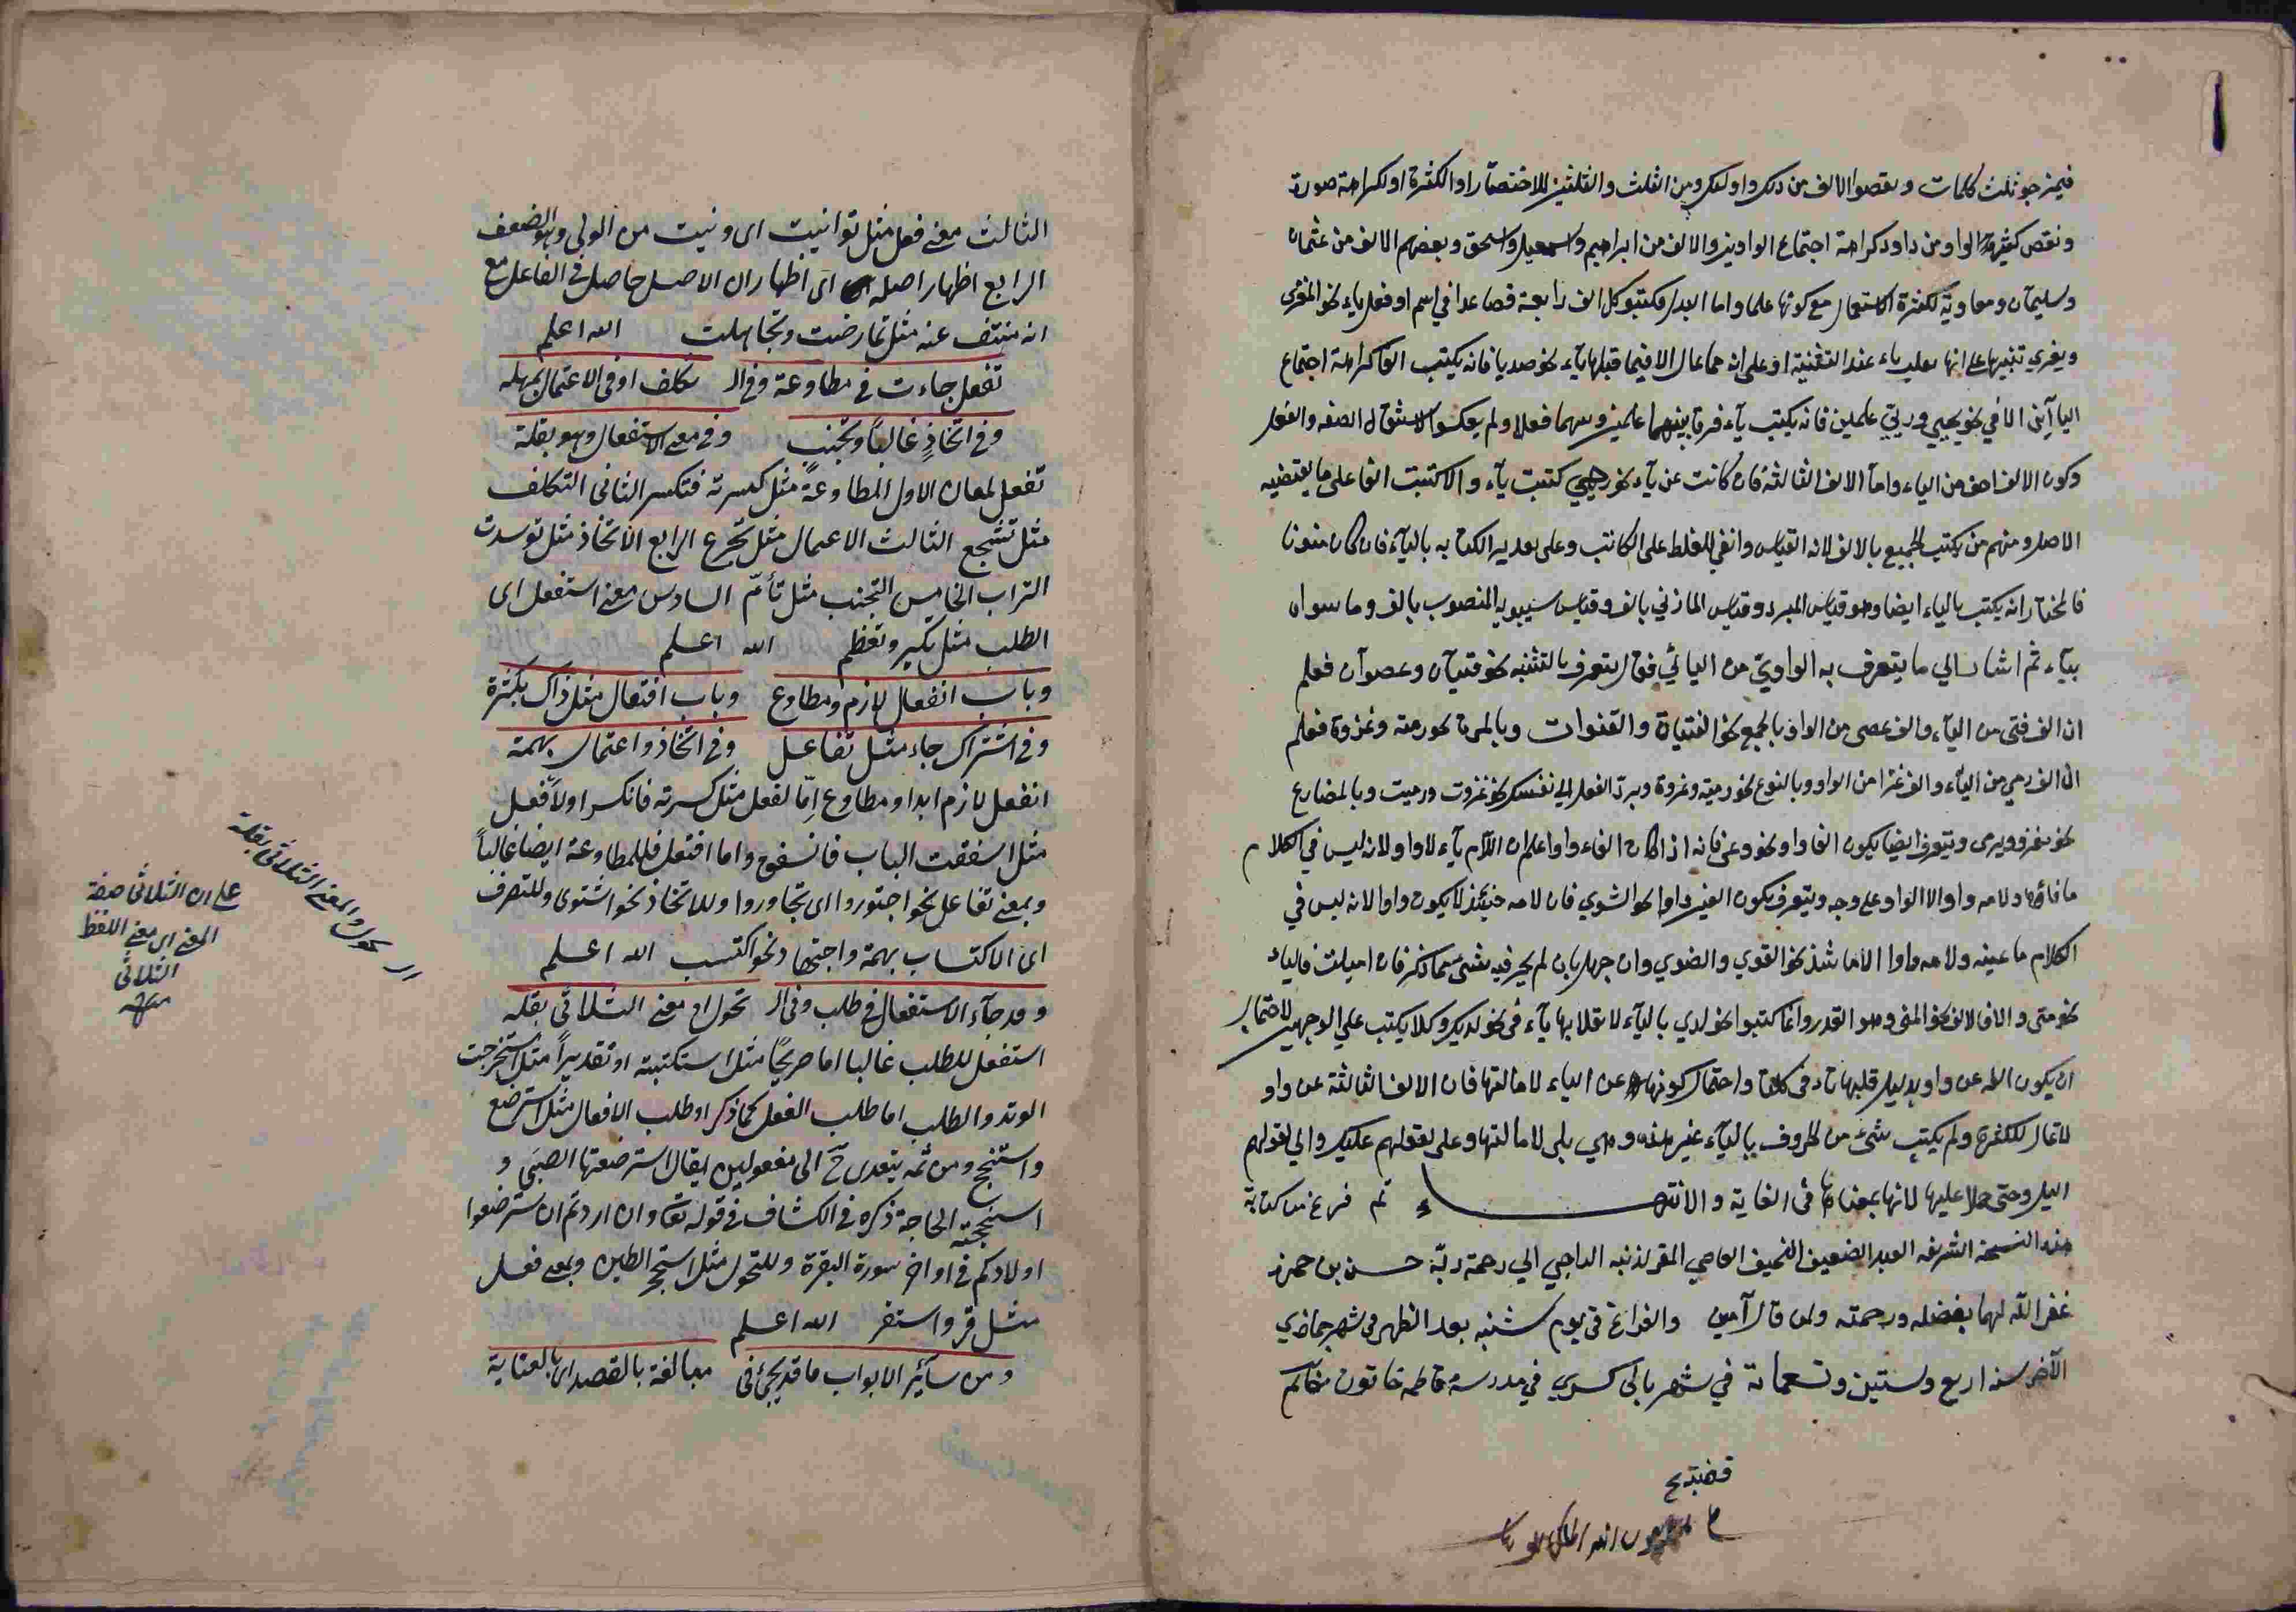 فيمزجو ثلث كلمات ونقصوا الالف من ذلك واولئك ومن الثلث والثلثين للاختصار او الكثرة او لكراهة صورة
ونقص كثير الواو من داود كراهة اجتماع الواوين والالف من ابراهيم واسمعيل واسحق وبعضهم الالف من عثمان
وسليمان ومعاوية لكثرة الاستعمال مع كونها علما واما البدل فكتبو كل الف رابعة فصاعدا في اسم او فعل ياء نحو المغزى
ويغزي تنبيها على انها تقلب ياء عند التثنية او على انه مما يمال الا فيما قبلها ياء نحو صديا فانه يكتب الفا كراهة اجتماع
اليائين الا في نحو يحيي وريي علمين فانه يكتب ياء فرقا بينهما علمين وبينهما فعلا ولم يعكسوا لاستثقال الصفة والفعل
وكون الالف اخف من الياء واما الالف الثالثة فان كانت عن ياء نحو رحيي كتبت ياء والا كتبت الفا على ما يقتضيه
الاصل ومنهم من يكتب الجميع بالالف لانه القياس وانفي للغلط على الكاتب وعلى تقدير الكتابة به بالياء فان كان منونا
فالمختار انه يكتب بالياء ايضا وهو قياس المبرد وقياس المازني بالف وقياس سيبويه المنصوب بالف وما سواه
بياء ثم اشار الي ما يتعرف به الواويّ من اليائي فقال يتعرف بالتثنيه نحو فتيان وعصوان فعلم
ان الف فتى من الياء والف عصى من الواو بالجمع نحو الفتيات والقنوات وبالمرة نحو رمية وغزوة فعلم
ان الف رمي من الياء والف غزا من الواو وبالنوع نحو رمية وغزوة وبردّ الفعل الي نفسك نحو غزوت ورميت وبالمضارع
نحو يغزو ويرمى ويتعرف ايضا بكون الفا واوا نحو وعى فانه اذا كان الفاء واوا علم ان اللام ياء لا واو لانه ليس في الكلام
ما فاؤه ولامه واو الا الواو على وجه ويتعرف بكون العين واوا نحو الشوي فان لامه حينئذ لا يكون واوا لانه ليس في
الكلام ما عينه ولامه واوا الا ما شذ نحو القوي والضوي وان جهل بان لم يجر فيه شيء مما ذكر فان اميلت فالياء
نحو متى والا فالالف نحو المنى وهو القدر وانما كتبوا نحو لدي بالياء لانقلابها ياء في نحو لديك وكلا يكتب علي الوجهين لاحتمال
ان يكون الفه عن واو بدليل قلبها تاء في كلتا واحتمال كونها عن الياء لامالتها فان الالف الثالثة عن واو
لا تمال للكثرة ولم يكتب شيء من الحروف بالياء غير هذه وهي بلى لامالتها وعلى لقولهم عليك والي لقولهم
اليك وحتى حملا عليها لانها بمعناها في الغاية والانتهاء تم فرغ من كتابة
هذه النسخة الشريفه العبد الضعيف النحيف العاصي المقر لذنبه الراجي الي رحمة ربّه حسن بن حمزه
غفر الله لهما بفضله ورحمته ولمن قال آمين والفراغ في يوم شنبه بعد الظهر في شهر جماذي
الآخر سنة اربع وستين وتسعمائة في شهر بالى كسري في مدرسة فاطمه خاتون
الثالث معنى فعل مثل توانيت اى ونيت من الونى وهو الضعف
الرابع اظهار اصله اى اظهار ان الاصل حاصل في الفاعل مع
انه منتف عنه مثل تمارضت وتجاهلت الله اعلم
تفعل جاءت في مطاوعة وفي ال تكلف او في الاعتمال بمهله
وفي اتخاذٍ غالباً وتجنب وفي معنى الاستفعال وهو بقلة
تفعل لمعان الاول المطاوعة مثل كسرته فتكسر الثانى التكلف
مثل تشجع الثالث الاعمال مثل تجرع الرابع الاتخاذ مثل توسدت
التراب الخامس التجنب مثل تأثم السادس معنى استفعل اى
الطلب مثل تكبر وتعظم الله اعلم
وباب انفعال لازم ومطاوع وباب افتعال مثل ذاك بكثرة
وفي اشتراك جاء مثل تفاعل وفي اتخاذ واعتمال بهمة
انفعل لازم ابدا ومطاوع اِمّا لفعل مثل كسرته فانكسر اولا فعل
مثل اسفقت الباب فانسفق واما افتعل فللمطاوعة ايضا غالباً
وبمعنى تفاعل نحو اجتوروا اى تجاوروا وللاتخاذ نحو اشتوى وللتصرف
اى الاكتساب بهمة واجتهاد نحو اكتسب الله اعلم
وقد جاء الاستفعال في طلب وفي ال تحول او معنى الثلاثي بقله
استفعل للطلب غالبا اما صريحًا مثل استكتبته او تقديراً مثل استخرجت
الوتد والطلب اما طلب الفعل كما ذكر او طلب الافعال مثل استرضع
واستنجح ومن ثمه يتعدى ح الى مفعولين يقال استرضعتها الصبى و
استنجحته الحاجة ذكره في الكشاف في قوله تعا وان اردتم ان تسترضعوا
اولادكم في اواخر سورة البقرة وللتحول مثل استحجر الطين وبمعنى فعل
مثل قر واستقر الله اعلم
ومن سائر الابواب ما قد يجئ في مبالغة بالقصد اى بالعناية
ال تحول والمعنى الثلاثي بقلة
على ان الثلاثى صفة
المعنى اى معنى اللفظ
الثلاثي